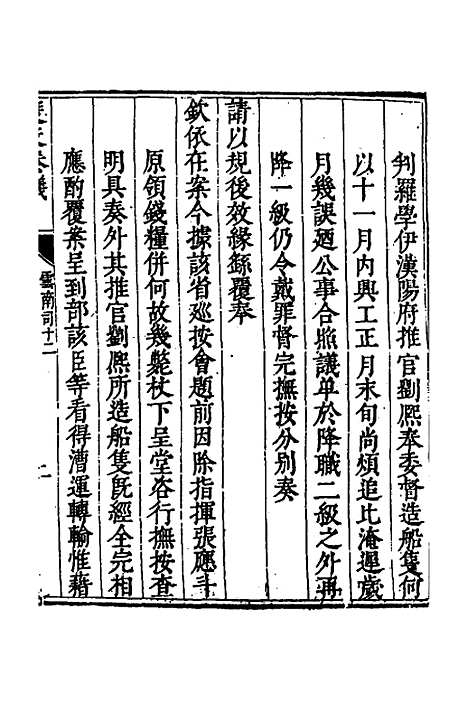 判羅學伊漢陽府推官劉熈奉委督造船隻何
以十一月内興工正月末旬尚煩追比淹遲歲
月幾誤廵公事合照議单於降職二級之外再
降一級仍令戴罪督完撫按分别奏
請以規後效緣繇覆奉
欽依在案今據該省廵按會題前因除指揮張應斗
原領錢糧併何故幾斃杖下呈堂咨行撫按查
明具奏外其推官劉熈所造船隻旣經全完相
應酌覆案呈到部該臣等看得漕運轉輸惟藉
雲南司十二